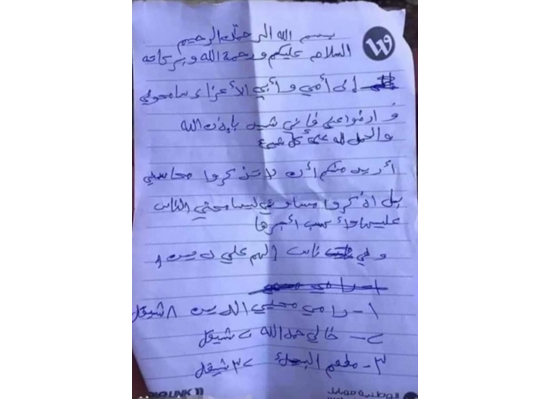 بسم الله الرحمن الرحيم
السلام عليكم ورحمة الله وبركاته
إلى أمي وأبي الأعزاء سامحوني
وادعوا علي فإني شهيد بإذن الله
والحمد لله على كل شيء
أريد منكم أن لا تذكروا محاسني
بل اذكروا مساوئي ليسامحني الناس
عليها وأكسب أجرها
وفي ناس الهم علي دين
١- رامي محيي الدين ٨ شيقل
٢- خالي حمد الله ٢ شيقل
٣- مطعم ٣٢ شيقل
LINK
الوطنية موبايل